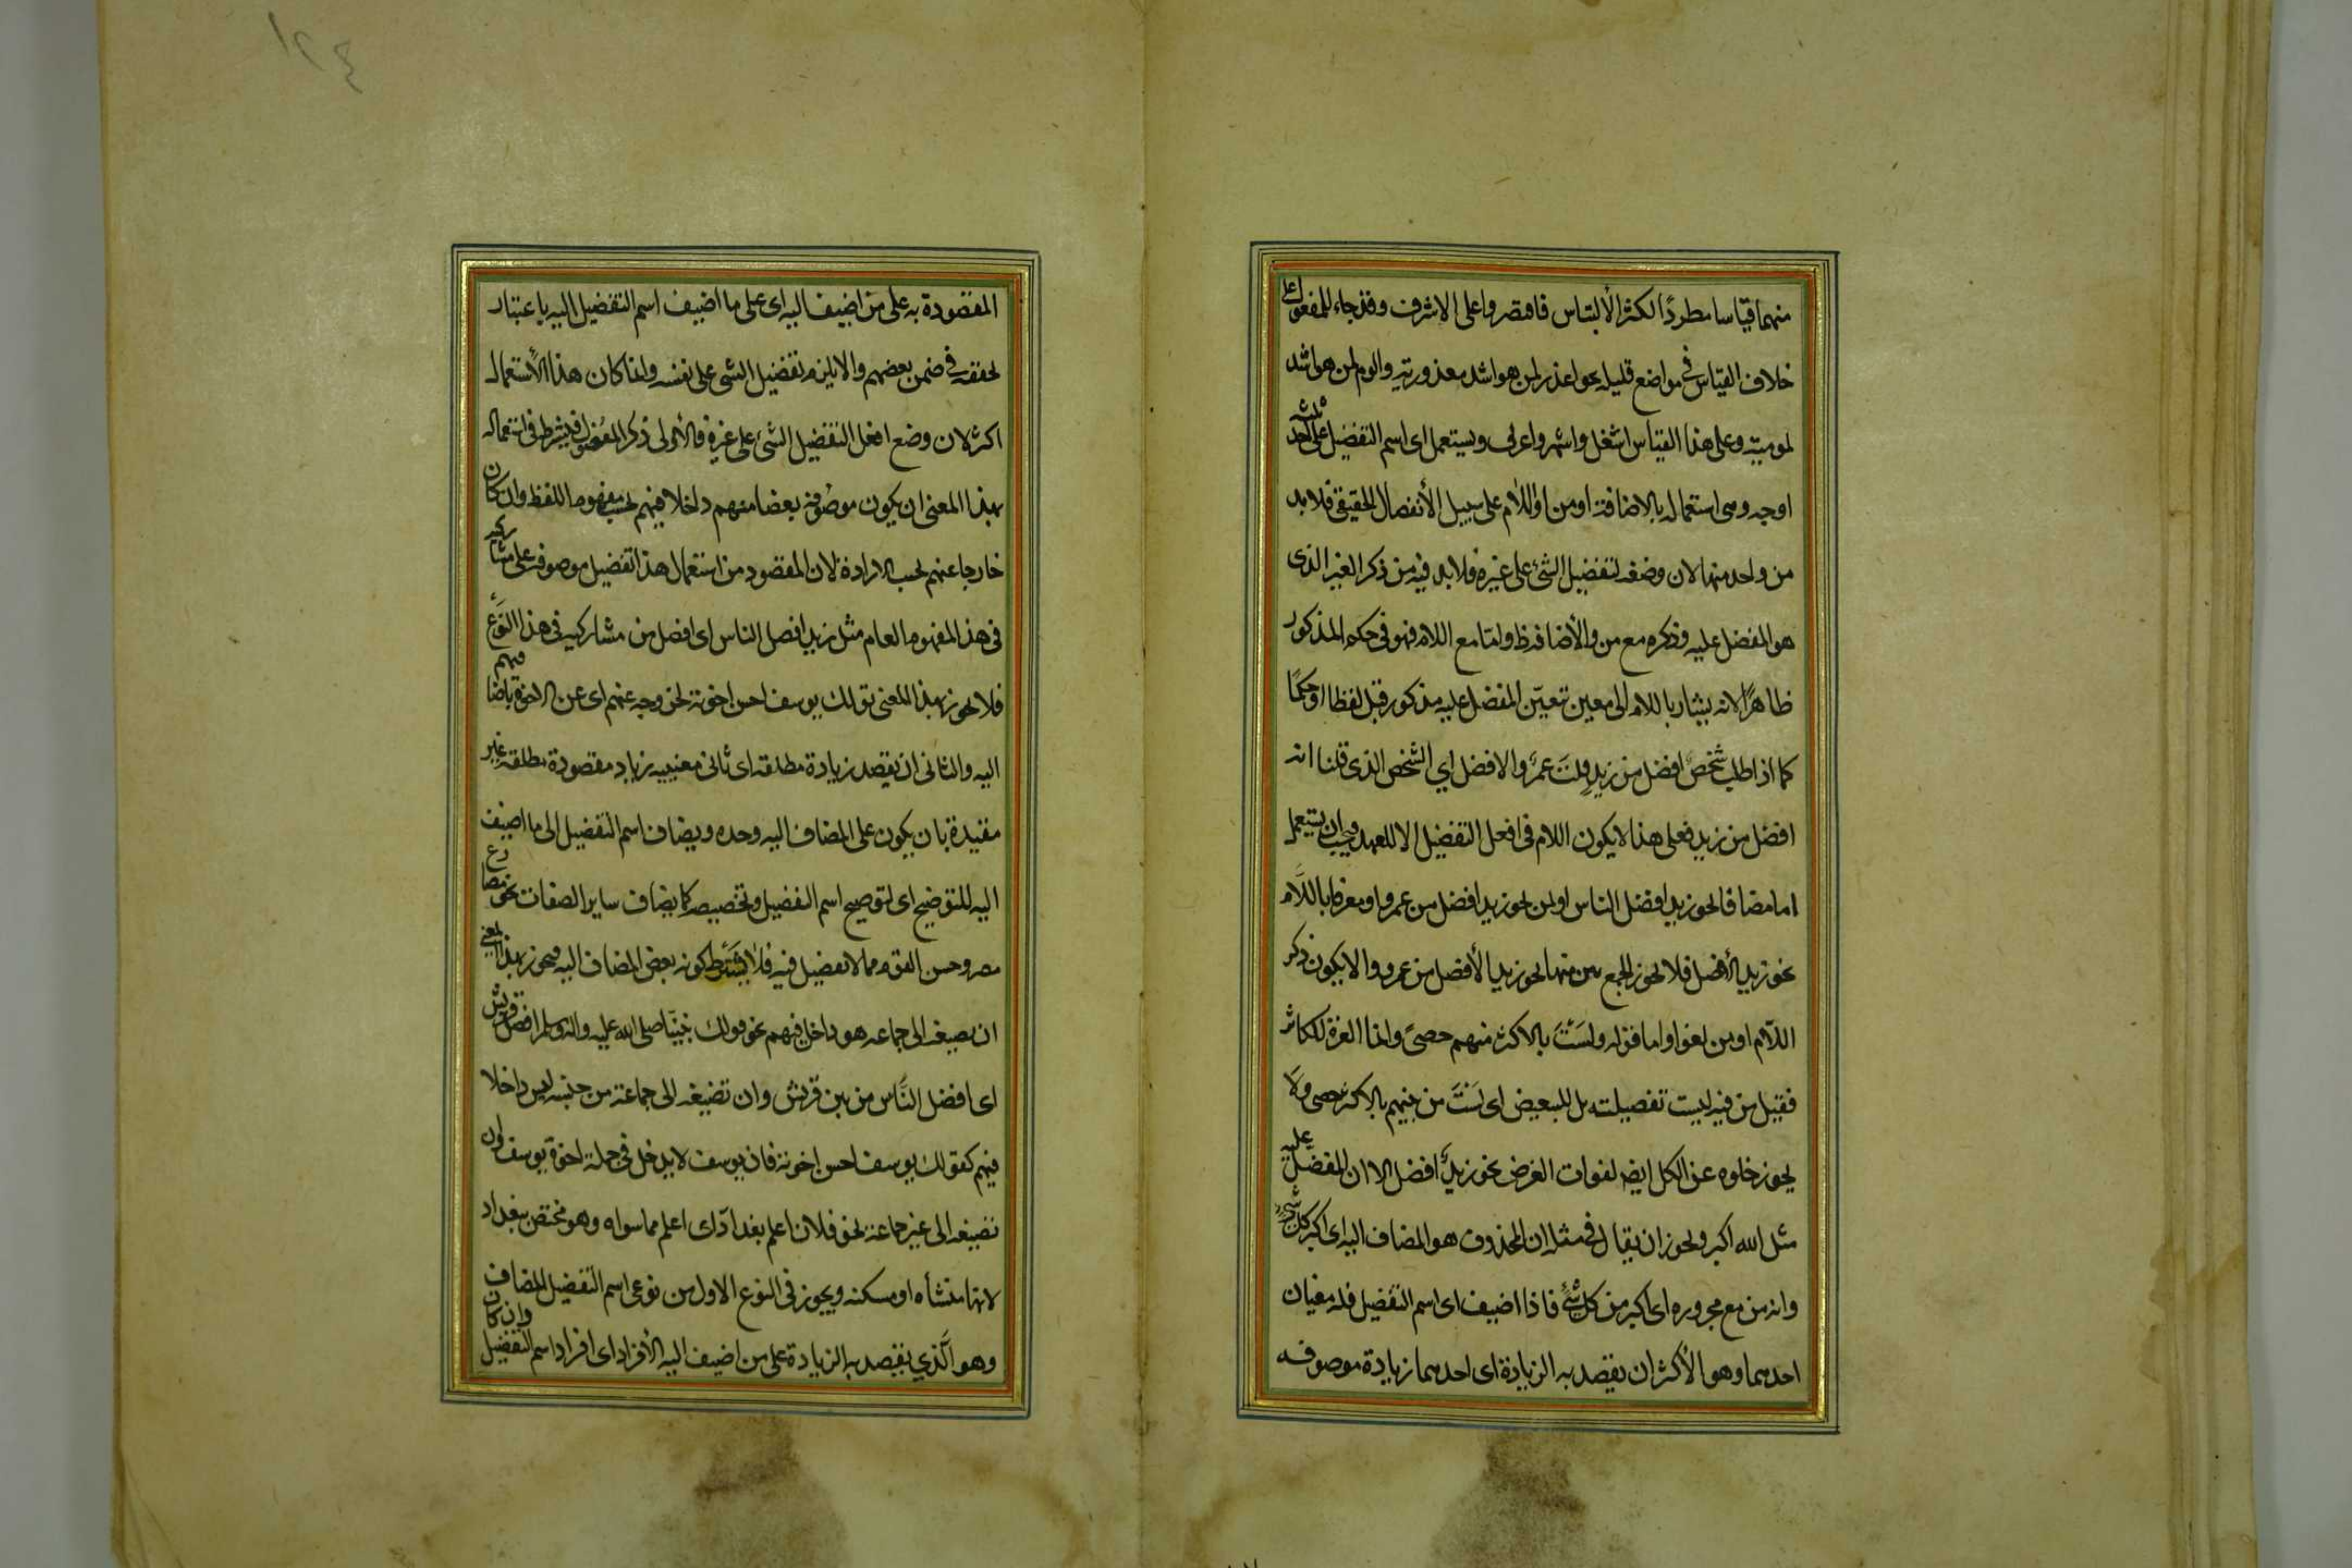 منهما قياسا مطردًا لكثر الألتباس فاقتصروا على الاشرف وقد جاء للمفعول على
خلاف القياس فى مواضع قليله نحو اعذر لمن هو اشد معذورتيه والوم لمن هو اشد
لموميته وعلى هذا القياس اشغل واشهر واعرف ويستعمل اى اسم التفضيل على احد ثلثه
اوجه وهى استعماله بالاضافة او من او اللام على سبيل الأنفصال الحقيقى فلا بد
من واحد منها لان وضعه لتفضيل الشئ على غيره فلا بد فيه من ذكر الغير الذى
هو المفضل عليه وذكره مع من والأضافه ظ واما مع اللام فهو فى حكم المذكور
ظاهرًا لانه يشار باللام الى معين تعيّن المفضل عليه مذكور قبل لفظا او حكمًا
كما اذا طلب شخص افضل من زيدٍ قلتَ عمرو الافضل اي الشخص الذى قلنا انه
افضل من زيد فعلى هذا لا يكون اللام فى افعل التفضيل الا للعهد ويجب ان يستعمل
اما مضافا نحو زيد افضل الناس او بمن نحو زيد افضل من عمرو او معرفا باللَّام
نحو زيد الأفضل فلا يجوز الجمع بين منها نحو زيد الأفضل من عمرو والا يكون ذكر
اللّام او من لغوا واما قوله ولَسَتَ بالاكثر منهم حصىً وانما العزة للكاثر
فقيل من فيه ليست تفضيلته بل للتبعيض اى لَسْتَ من بينهم بالاكثر حصى ولا
يجوز خلوه عن الكل ايضه لفوات الغرض نحو زيدٌ افضل الا ان المفضل عليه
مثل الله اكبر ويجوز ان يقال فى مثله ان المحذوف هو المضاف اليه اى اكبر كل شئ
وانه من مع مجروره اى اكبر من كل شئٍ فاذا اضيف اى اسم التفضيل فله معنيان
احدهما وهو الأكثر ان يقصد به الزيادة اى احدهما زيادة موصوفه
المقصودة به على من اضيف اليه اى على ما اضيف اسم التفضيل اليه باعتبار
تحققه فى ضمن بعضهم والا يلزم تفضيل الشى على نفسه وانما كان هذا الأستعمال
اكثر لان وضع افعل التفضيل الشئ على غيره فالأولى ذكر المفضول فيشترط فى استعماله
بهذا المعنى ان يكون موصوفه بعضا منهم داخلا فيهم بحسب مفهوم اللفظ وان كان
خارجا عنهم بحسب الارادة لان المقصود من استعمال هذا تفضيل موصوفه على مشاركيه
فى هذا المفهوم العام مثل زيد افضل الناس اى افضل من مشاركيه فى هذا النوع
فلا يجوز بهذا المعنى قولك يوسف احسن اخوته لخروجه عنهم اى عن الاخوة باضافتهم
اليه والثانى ان يقصد زيادة مطلقه اى ثانى معنييه زياد مقصودة مطلقه غير
مقيدة بان يكون على المضاف اليه وحده ويضاف اسم التفضيل الى ما اضيف
اليه للتوضيح اى لتوضيح اسم التفضيل وتخصيصه كما يضاف ساير الصفات نحو مصارع
مصر وحسن القوم مما لا تفضيل فيه فلا يشترط كونه بعض المضاف اليه فيجوز بهذا المعنى
ان يضيفه الى جماعه هو داخل فيهم نحو قولك نبيّنا صلى الله عليه واله وسلم افضل قريش
اى افضل النَّاس من بين قريش وان تضيفه الى جماعة من جنسه ليس داخلا
فيهم كقولك يوسف احسن اخوته فان يوسف لا يدخل فى جملة اخوة يوسف وان
تضيفه الى غير جماعة نحو فلان اعلم بغداد اى اعلم مما سواه وهو مختص ببغداد
لانها منشأه او مسكنه ويجوز فى النوع الاول من نوعى اسم التفضيل المضاف
وهو الَّذي يقصد به الزيادة على من اضيف اليه الأفراد اى افراد اسم التفضيل وان كان
١٢٤